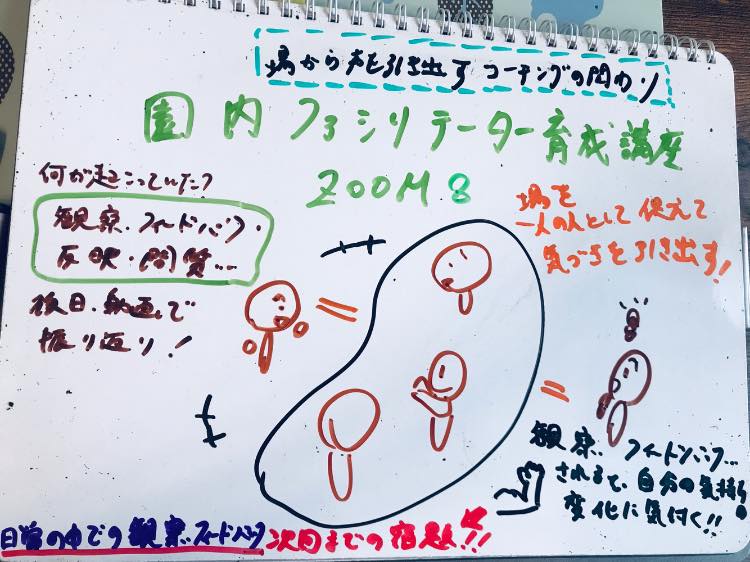 場から声を引き出すコーチングの関わり
園内ファシリテーター育成講座
ZOOM 8
何が起こっていた?
観察、フィードバック・
反映・問質...
後日、動画で
振り返り!
場を
一人の人として捉えて
気づきを引き出す!
観察、フィードバック...
されると、自分の気持ちの
変化に気付く!!
日常の中での観察、フィードバック 次回までの宿題!!!